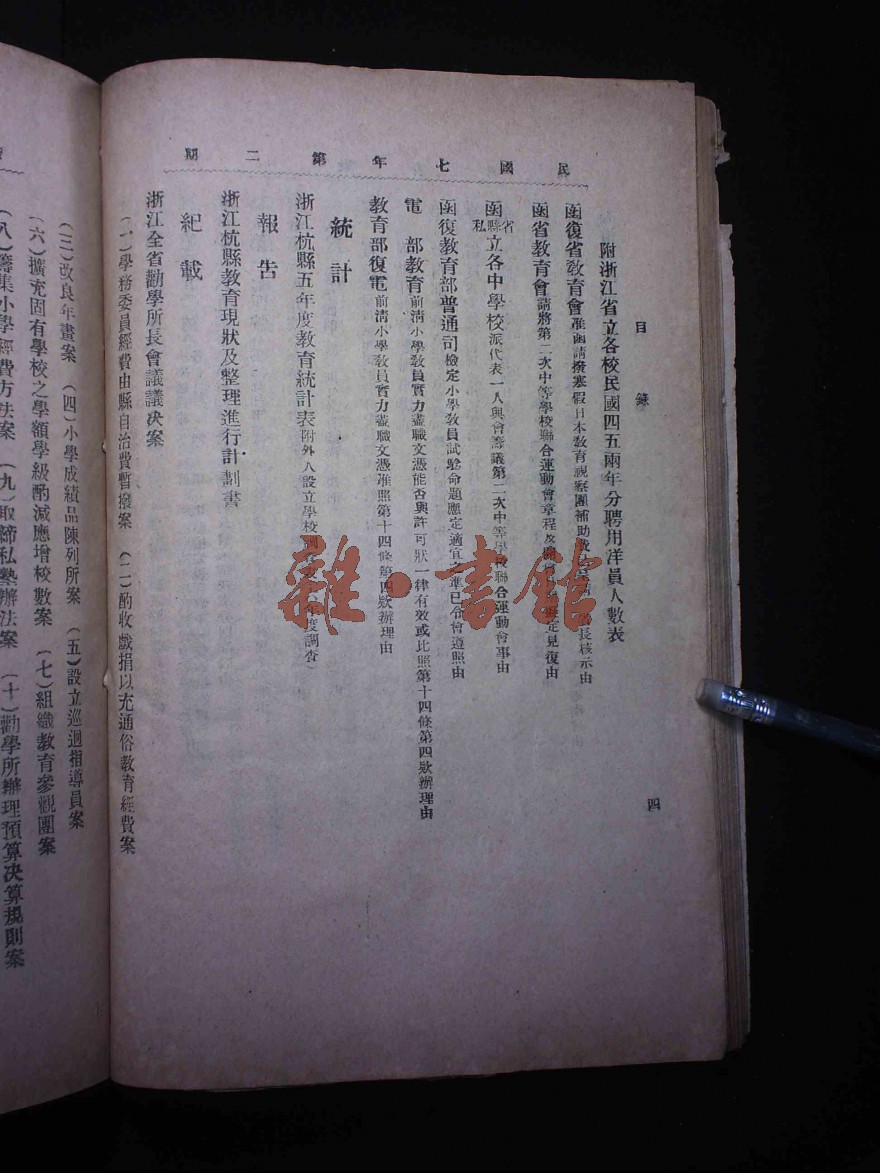 民國七年第二期
目錄
四
附浙江省立各校民國四五兩年分聘用洋員人數表
函復省教育會准函請撥寒假日本教育視察團補助長核示由
函省教育會請將第二次中等學校聯合運動會章程定見復由
函省縣私立各中學校派代表一人與會籌議第二次中等學校聯合運動會事由
函復教育部普通司檢定小學教員試驗命題應定適宜之準已令會遵照由
電 部教育前清小學教員實力盡職文憑能否與許可狀一律有效或比照第十四條第四款辦理由
教育部復電前清小學教員實力盡職文憑准照第十四條第四款辦理由
統計
浙江杭縣五年度教育統計表附外人設立學校年度調查
報告
浙江杭縣教育現狀及整理進行計劃書
紀載
浙江全省勸學所長會議議决案
(一)學務委員經費由縣自治費暫撥案 (二)酌收戲捐以充通俗教育經費案
(三)改良年畫案 (四)小學成績品陳列所案 (五)設立巡迴指導員案
(六)擴充固有學校之學額學級酌減應增校數案 (七)組織教育參觀團案
(八)籌集小學經費方法案 (九)取締私塾辦法案 (十)勸學所辦理預算决算規則案
雜·書館